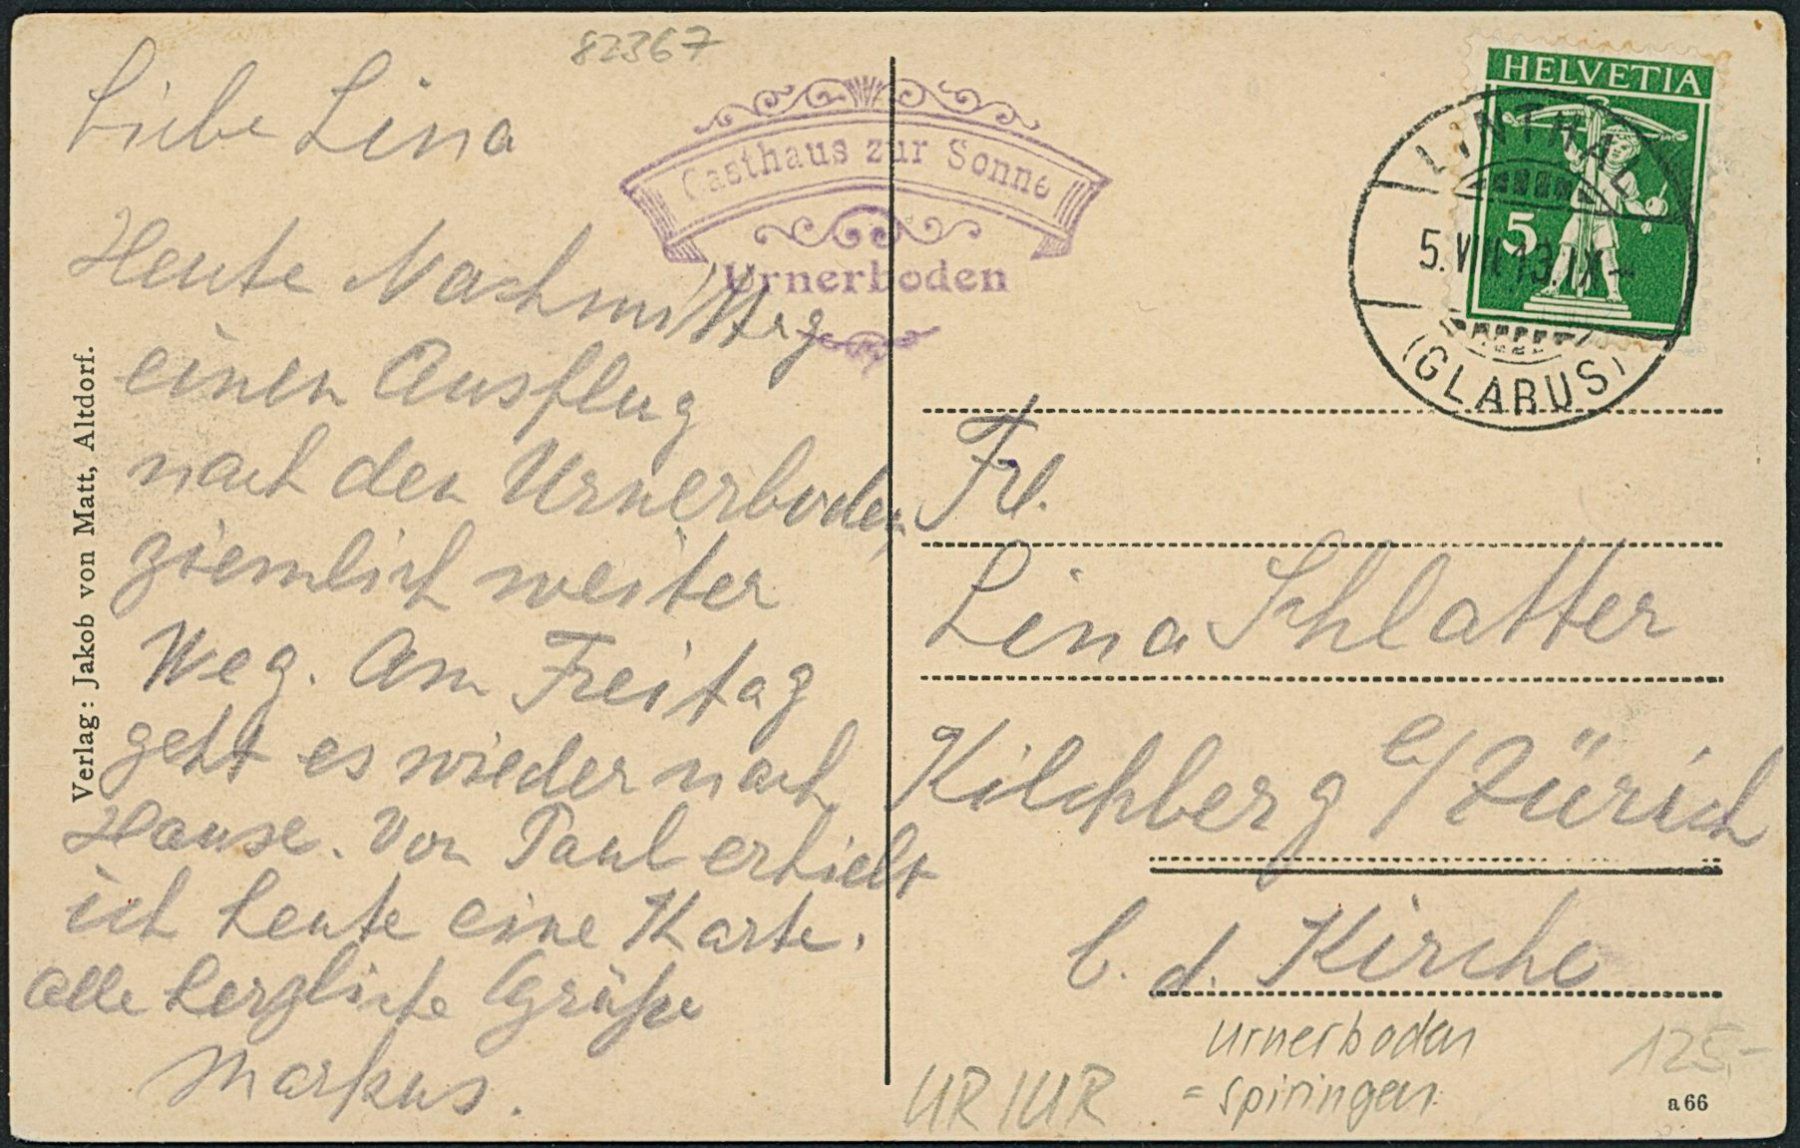 82367
Liebe Lina
Heute Nachmittag
einen Ausflug
nach den Urnerboden,
ziemlich weiter
Weg. Am Freitag
geht es wieder nach
Hause. Von Paul erhielt
ich heute eine Karte.
Alle herzliche Grüße
Markus.
Verlag: Jakob von Matt, Altdorf.
Gasthaus zur Sonne
Urnerboden
HELVETIA
5
LINTHAL
5.VIII.13.IX-
(GLARUS)
Frl.
Lina Schlatter
Kilchberg b/Zürich
b. d. Kirche
Urnerboden
= Spiringen
UR/UR
125,-
a 66